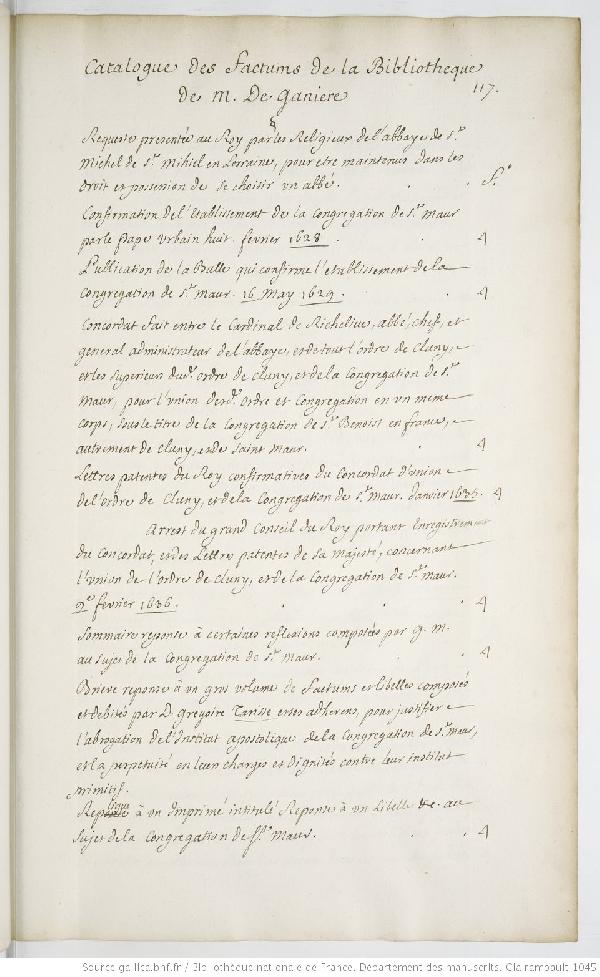 Catalogue des Factums de la Bibliotheque
de M. De Ganiere
117.
Requeste presentée au Roy par les Religieux de l'abbaye de St.
Michel de St. Mihiel en Lorraine, pour être maintenus dans les
droit et possession de se choisir un abbé. . . fo.
Confirmation de l'Etablissement de la Congregation de St. Maur
par le Pape Urbain huit. fevrier 1628. . 4
Publication de la Bulle qui confirme l'etablissement de la
Congregation de St. Maur. 16 May 1629. . 4
Concordat fait entre le Cardinal de Richelieu, abbé, chef, et
general administrateur de l'abbaye, et de tout l'ordre de Cluny,
et les superieurs dud. ordre de Cluny, et de la Congregation de St.
Maur, pour l'union desd. ordre et Congregation en un meme
corps, sous le titre de la Congregation de St. Benoist en france,
autrement de Cluny, et de Saint Maur. 4
Lettres patentes du Roy confirmatives du Concordat d'union
de l'ordre de Cluny, et de la Congregation de St. Maur. Janvier 1635. 4
Arrest du grand Conseil du Roy portant Enregistrement
du Concordat, et des Lettres patentes de sa Majesté, concernant
l'union de l'ordre de Cluny, et de la Congregation de St. Maur.
2e. fevrier 1636. . . . 4
Sommaire reponse à certaines reflexions composées par G. M.
au sujet de la Congregation de St. Maur. . . 4
Brieve reponse à un gros volume de Factums et libelles composés
et debités par D. Gregoire Tarisse et ses adherens, pour justifier
l'abrogation de l'Institut apostolique de la Congregation de St. Maur,
et la perpetuité en leur charges et Dignités contre leur institut
primitif.
Replique à un Imprimé intitulé Reponse à un Libelle &c. au
sujet de la Congregation de St. Maur. . . 4
Source gallica.bnf.fr / Bibliothèque nationale de France. Département des manuscrits. Clairambault 1045